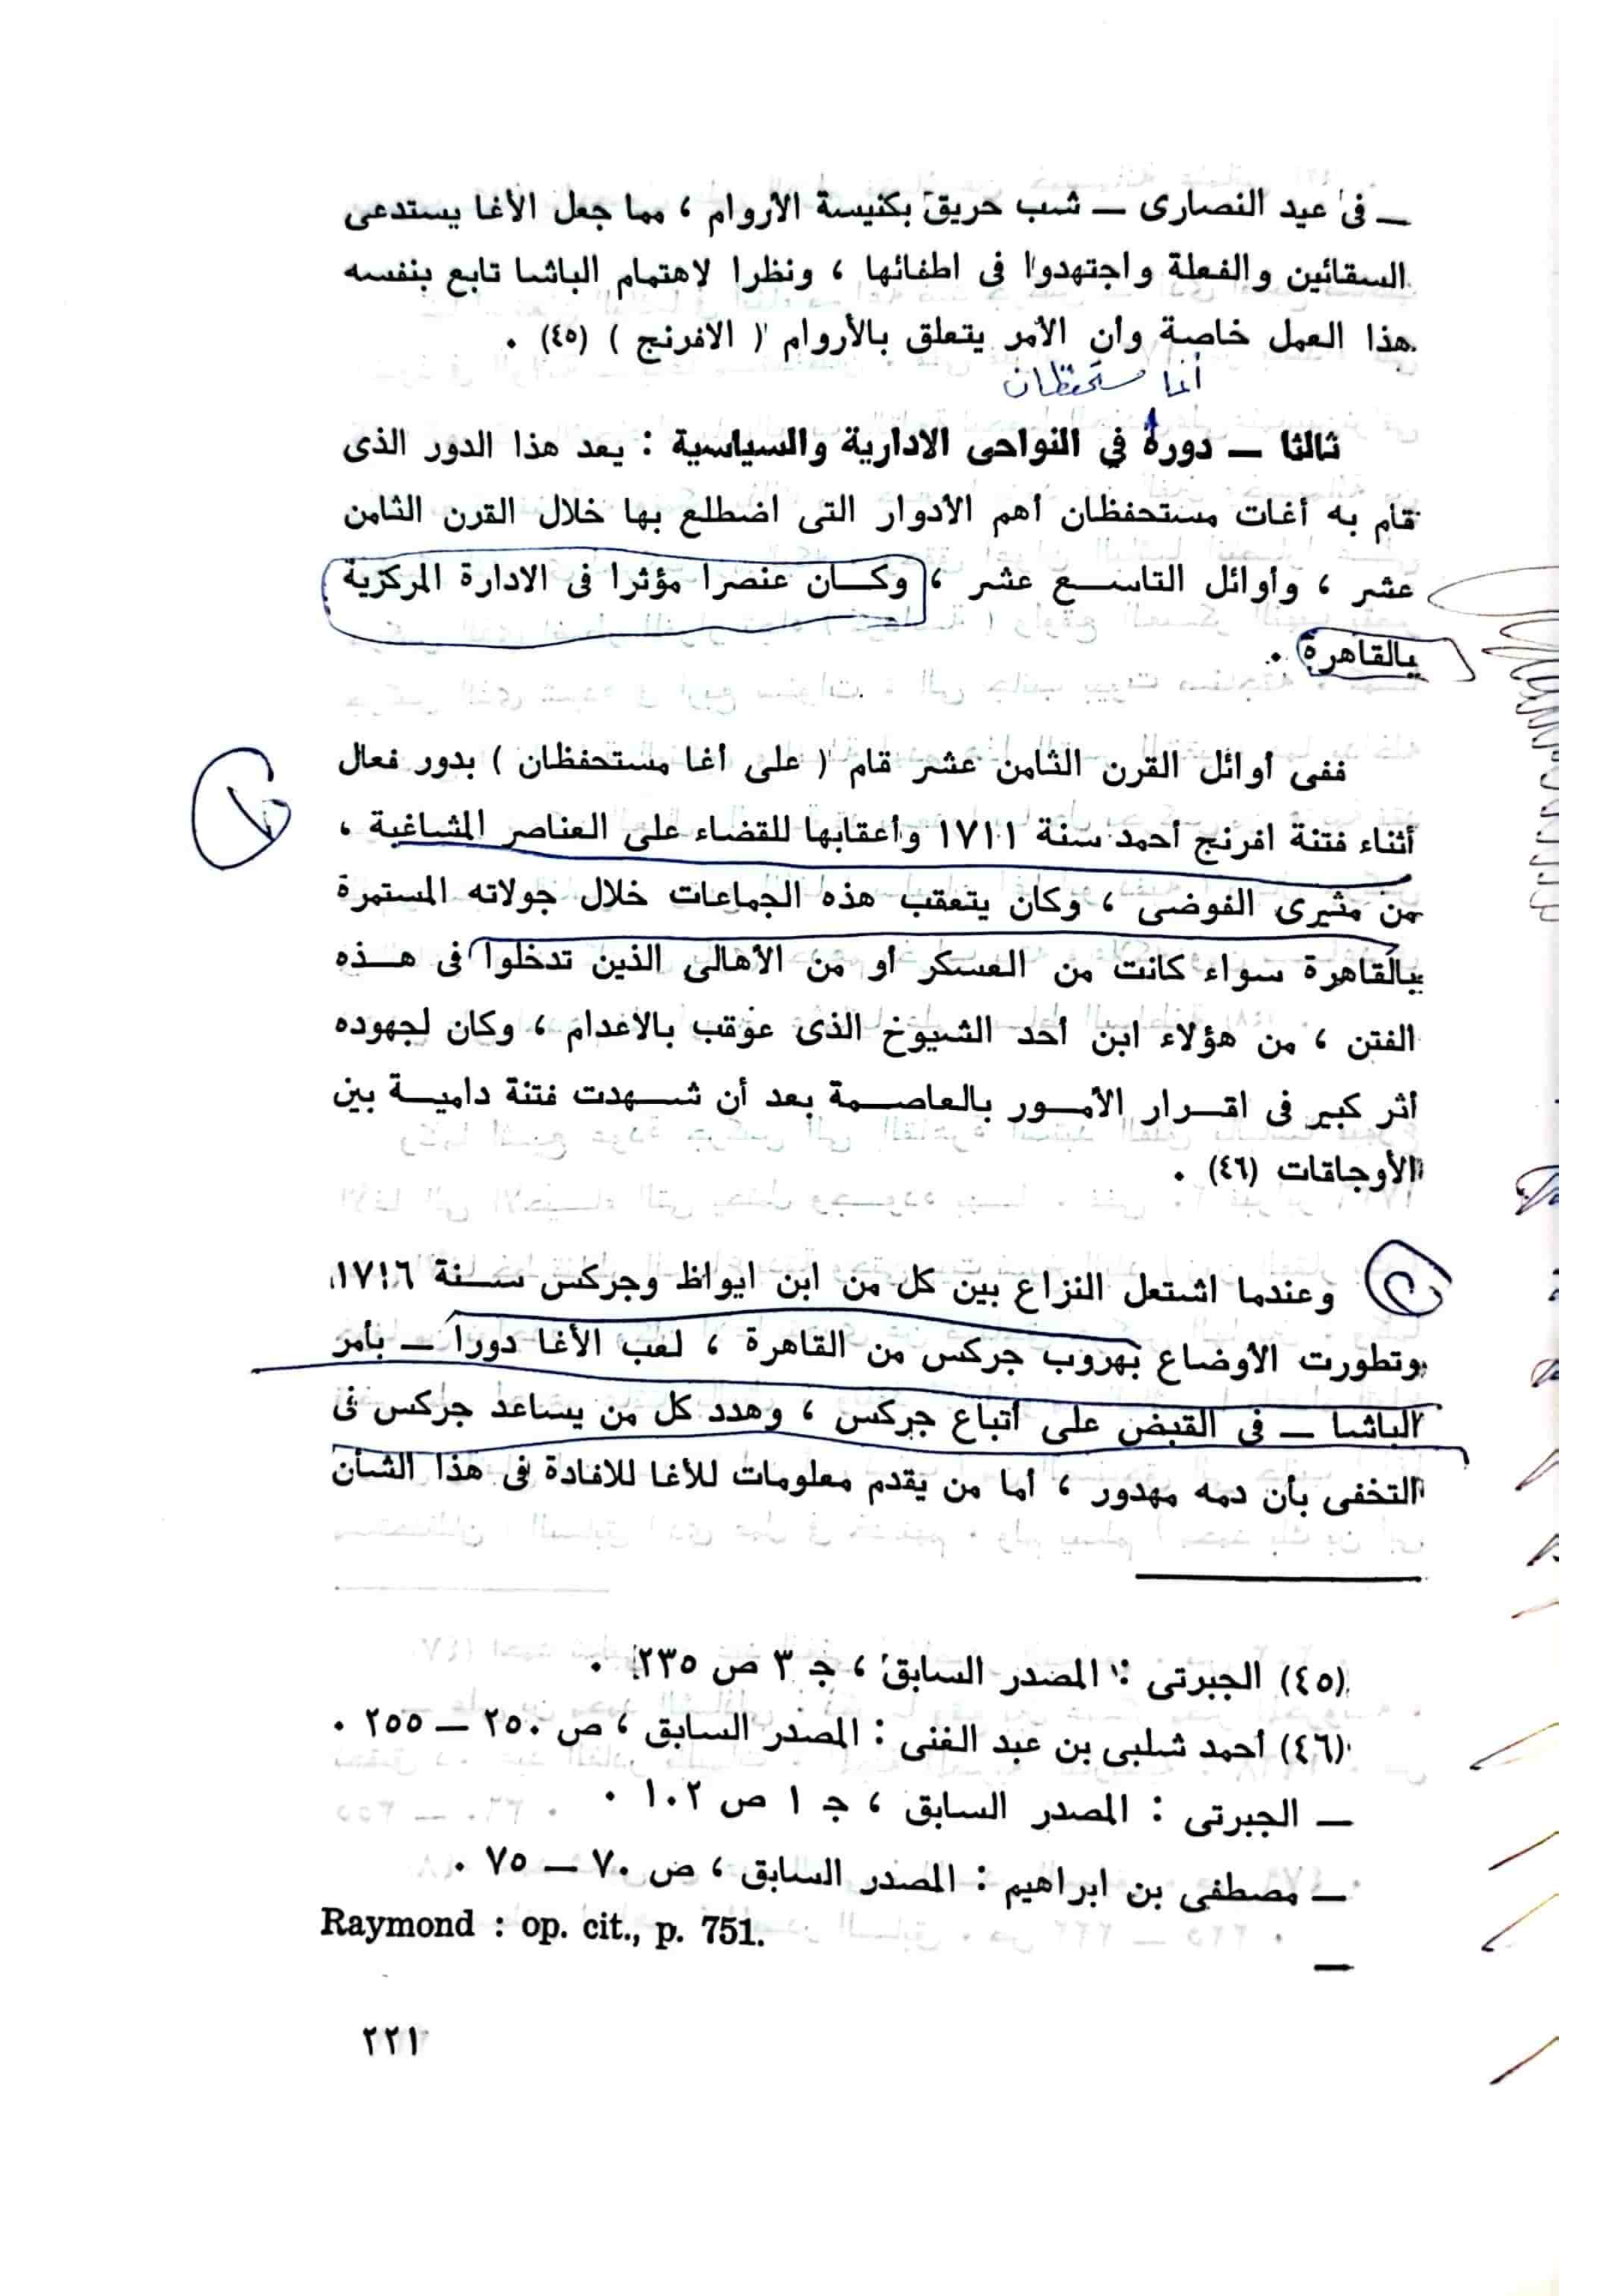 ــ فى عيد النصارى ــ شب حريق بكنيسة الأروام ، مما جعل الأغا يستدعى
السقائين والفعلة واجتهدوا فى اطفائها ، ونظرا لاهتمام الباشا تابع بنفسه
هذا العمل خاصة وأن الأمر يتعلق بالأروام ( الافرنج ) (٤٥) ٠
أغا مستحفظان
ثالثا ــ دوره في النواحى الادارية والسياسية : يعد هذا الدور الذى
قام به أغات مستحفظان أهم الأدوار التى اضطلع بها خلال القرن الثامن
عشر ، وأوائل التاســع عشر ، وكــان عنصرا مؤثرا فى الادارة المركزية
بالقاهرة ٠
ففى أوائل القرن الثامن عشر قام ( على أغا مستحفظان ) بدور فعال
أثناء فتنة افرنج أحمد سنة ١٧١١ وأعقابها للقضاء على العناصر المشاغبة ،
من مثيرى الفوضى ، وكان يتعقب هذه الجماعات خلال جولاته المستمرة
بالقاهرة سواء كانت من العسكر أو من الأهالى الذين تدخلوا فى هــذه
الفتن ، من هؤلاء ابن أحد الشيوخ الذى عوقب بالاعدام ، وكان لجهوده
أثر كبير فى اقــرار الأمــور بالعاصــمة بعد أن شــهدت فتنة داميــة بين
الأوجاقات (٤٦) ٠
وعندما اشتعل النزاع بين كل من ابن ايواظ وجركس ســنة ١٧١٦
وتطورت الأوضاع بهروب جركس من القاهرة ، لعب الأغا دورا ــ بأمر
الباشا ــ فى القبض على أتباع جركس ، وهدد كل من يساعد جركس فى
التخفى بأن دمه مهدور ، أما من يقدم معلومات للأغا للافادة فى هذا الشأن
(٤٥) الجبرتى : المصدر السابق ، جـ ٣ ص ٢٣٥ ٠
(٤٦) أحمد شلبى بن عبد الغنى : المصدر السابق ، ص ٢٥٠ ــ ٢٥٥ ٠
ــ الجبرتى : المصدر السابق ، جـ ١ ص ١٠٢ ٠
ــ مصطفى بن ابراهيم : المصدر السابق ، ص ٧٠ ــ ٧٥ ٠
ــ Raymond : op. cit., p. 751.
٢٢١